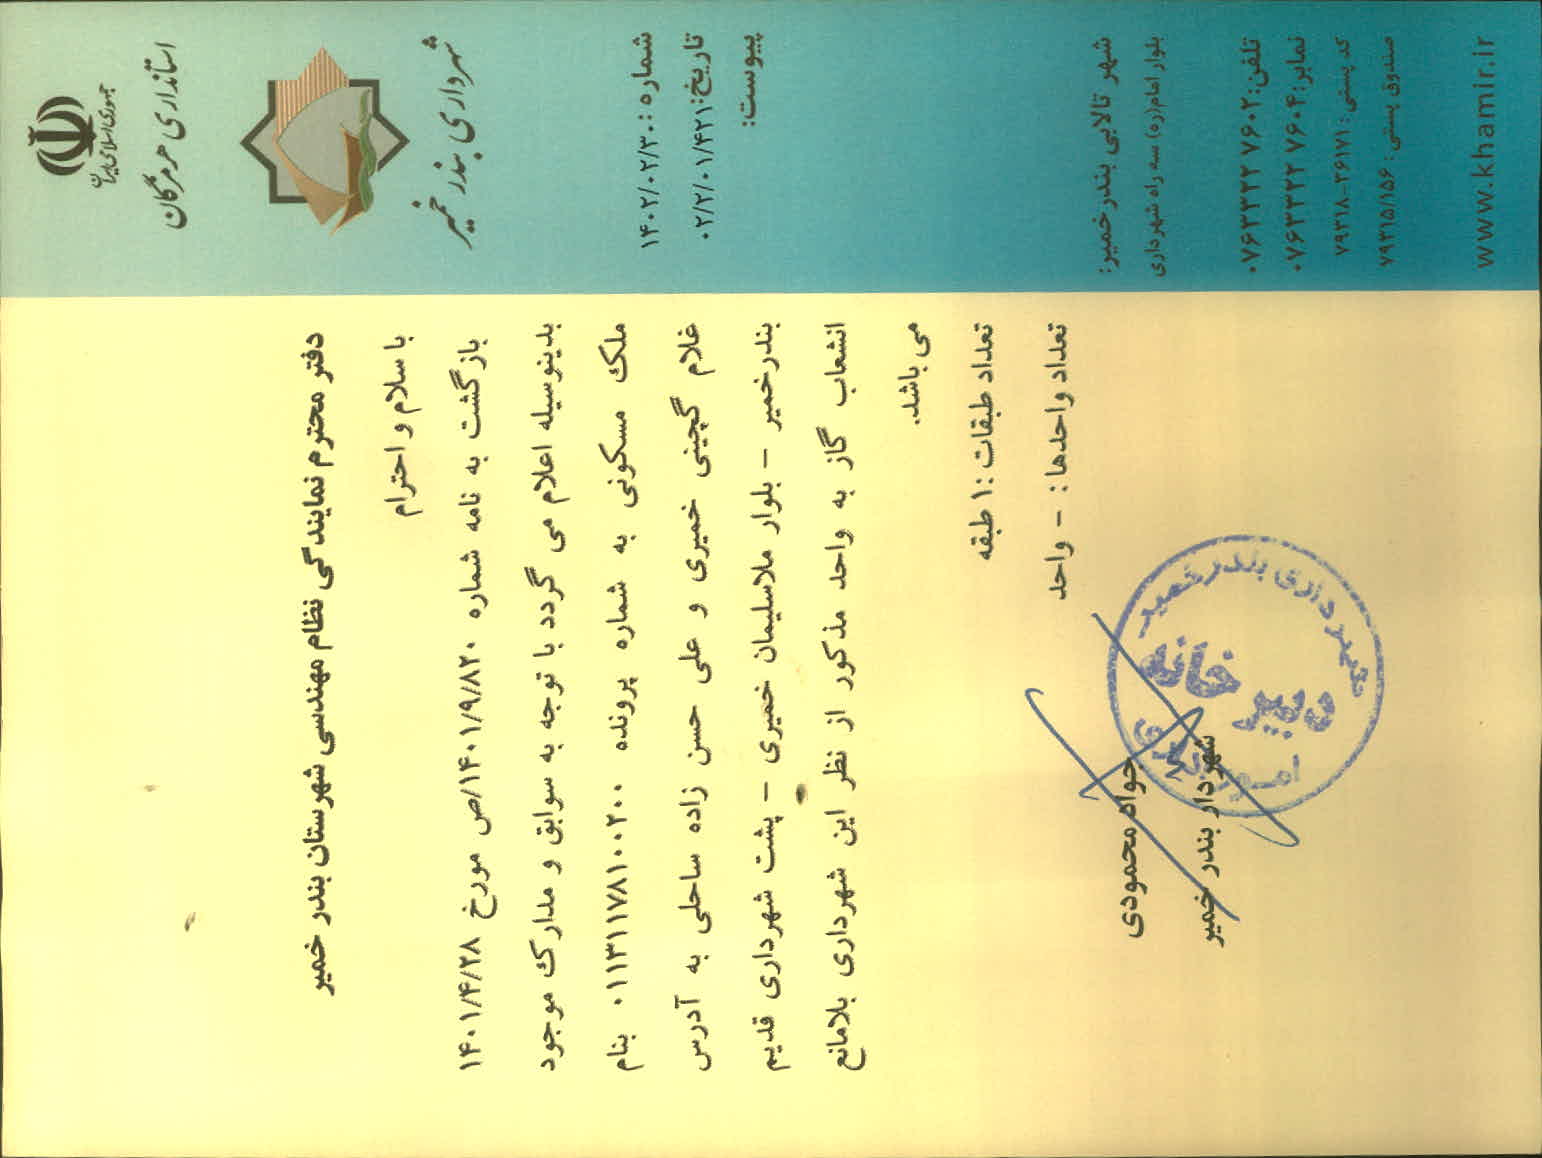 جمهوری اسلامی ایران
استانداری هرمزگان
شهرداری بندر خمیر
شماره: ۱۴۰۲/۰۲/۳۰
تاریخ: ۰۲/۲/۰۱/۴۲۱
پیوست:
دفتر محترم نمایندگی نظام مهندسی شهرستان بندر خمیر
با سلام و احترام
بازگشت به نامه شماره ۱۴۰۱/۹/۸۲۰/ص مورخ ۱۴۰۱/۴/۲۸
بدینوسیله اعلام می گردد با توجه به سوابق و مدارک موجود
ملک مسکونی به شماره پرونده ۰۱۱۳۱۱۷۸۱۰۰۲۰۰ بنام
غلام گچینی خمیری و علی حسن زاده ساحلی به آدرس
بندرخمیر - بلوار ملاسلیمان خمیری - پشت شهرداری قدیم
انشعاب گاز به واحد مذکور از نظر این شهرداری بلامانع
می باشد.
تعداد طبقات :۱ طبقه
تعداد واحدها : - واحد
جواد محمودی
شهردار بندر خمیر
شهرداری بندر خمیر
دبیرخانه
امور اداری
شهر تالابی بندرخمیر:
بلوار امام(ره) سه راه شهرداری
تلفن: ۰۷۶۳۳۲۲ ۷۶۰۲
نمابر: ۰۷۶۳۳۲۲ ۷۶۰۴
کد پستی: ۷۹۳۱۸-۳۶۱۷۱
صندوق پستی: ۷۹۳۱۵/۱۵۶
www.khamir.ir